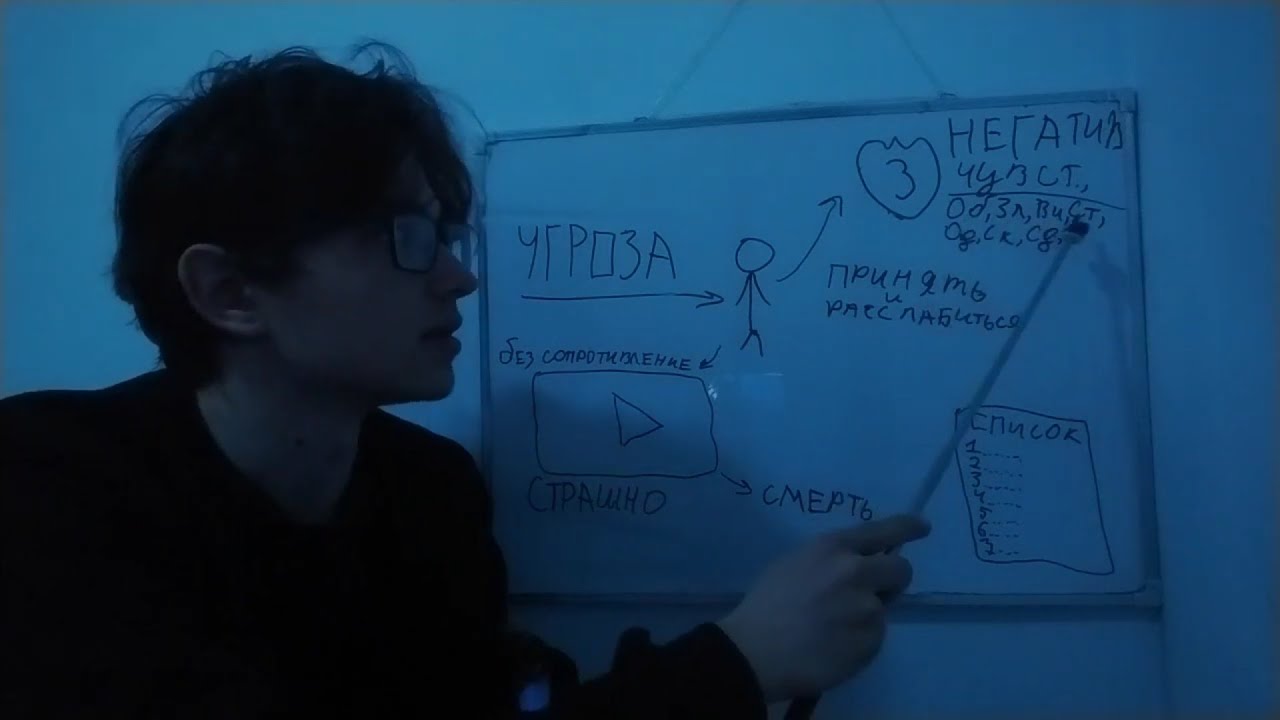 НЕГАТИВ
ЧУВСТ.,
3
Об, Зл, Ви, Ст,
Од, Ск, Сд,
УГРОЗА
ПРИНЯТЬ
И
РАССЛАБИТЬСЯ
без сопротивление
СТРАШНО
СМЕРТЬ
СПИСОК
1
2
3
4
5
6
7